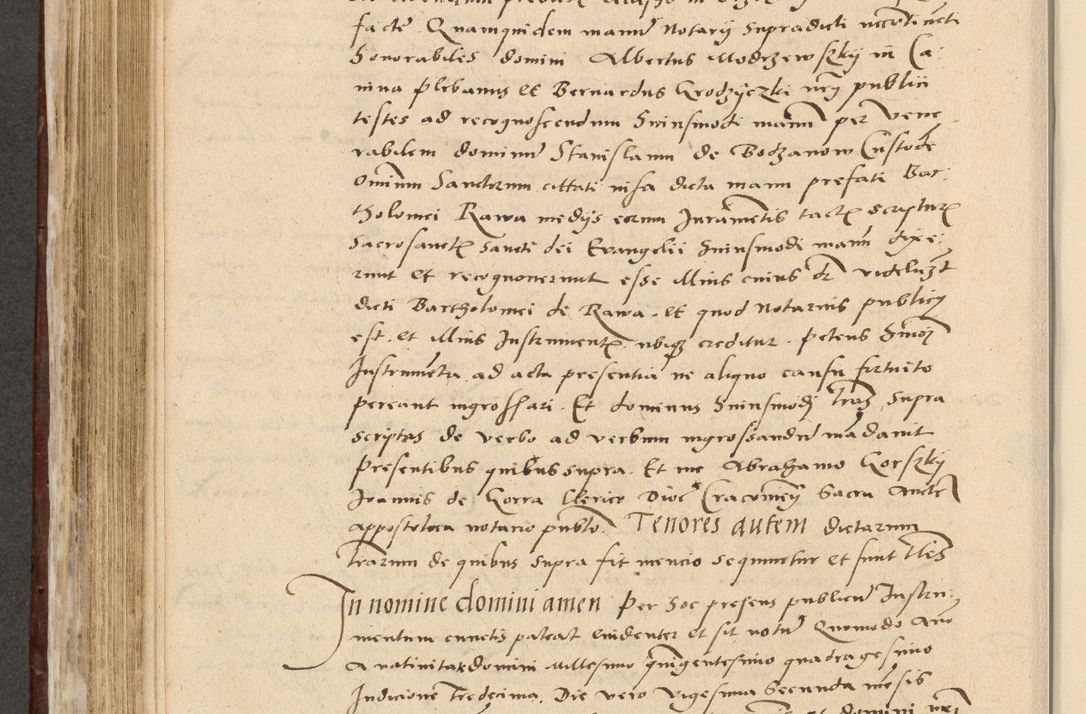 facte. Quamquidem manu Notarii supradicti
honorabiles domini Albertus Modrzewszky in Ca:
nina plebanus et Bernardus Grodzyczki publici
testes ad recognoscendum huiusmodi manu per vene
rabilem dominu Stanislaum de Bodzanow Custode
Omnium Sanctorum cittati visa dicta manu prefati Bar:
tholomei Rawa medys eorum Iuramentis tactis scripturis
Sacrosanctis Sancti dei Evangelii huiusmodi manu dixe:
runt et recognoverunt esse illius cuius dr videlicet
dicti Bartholomei de Rawa. et quod Notarius publicy
est. et illius Instrumentis ubique creditur. Petens huiusmodi
Instrumenta ad acta presentia ne aliquo casu fortuito
pereant ingrossari. Et dominus huiusmodi tras supra
scriptas de verbo ad verbum ingrossandu madavit
presentibus quibus supra. Et me Abrahamo Gorszky
Ioannis de Gorra Clerico Dioc Cracovien Sacra Aucte
appostolica notario publo. Tenores autem dictarum
trarum de quibus supra fit mencio sequuntur et sunt tles
In nomine domini amen Per hoc presens publicu Instru:
mentum cunctis pateat evidenter et sit notu Quomodo Ano
A nativitate domini Millesimo quingentesimo quadragesimo
Indicione tredecima. Die vero vigesima secunda mesis
et domini nri